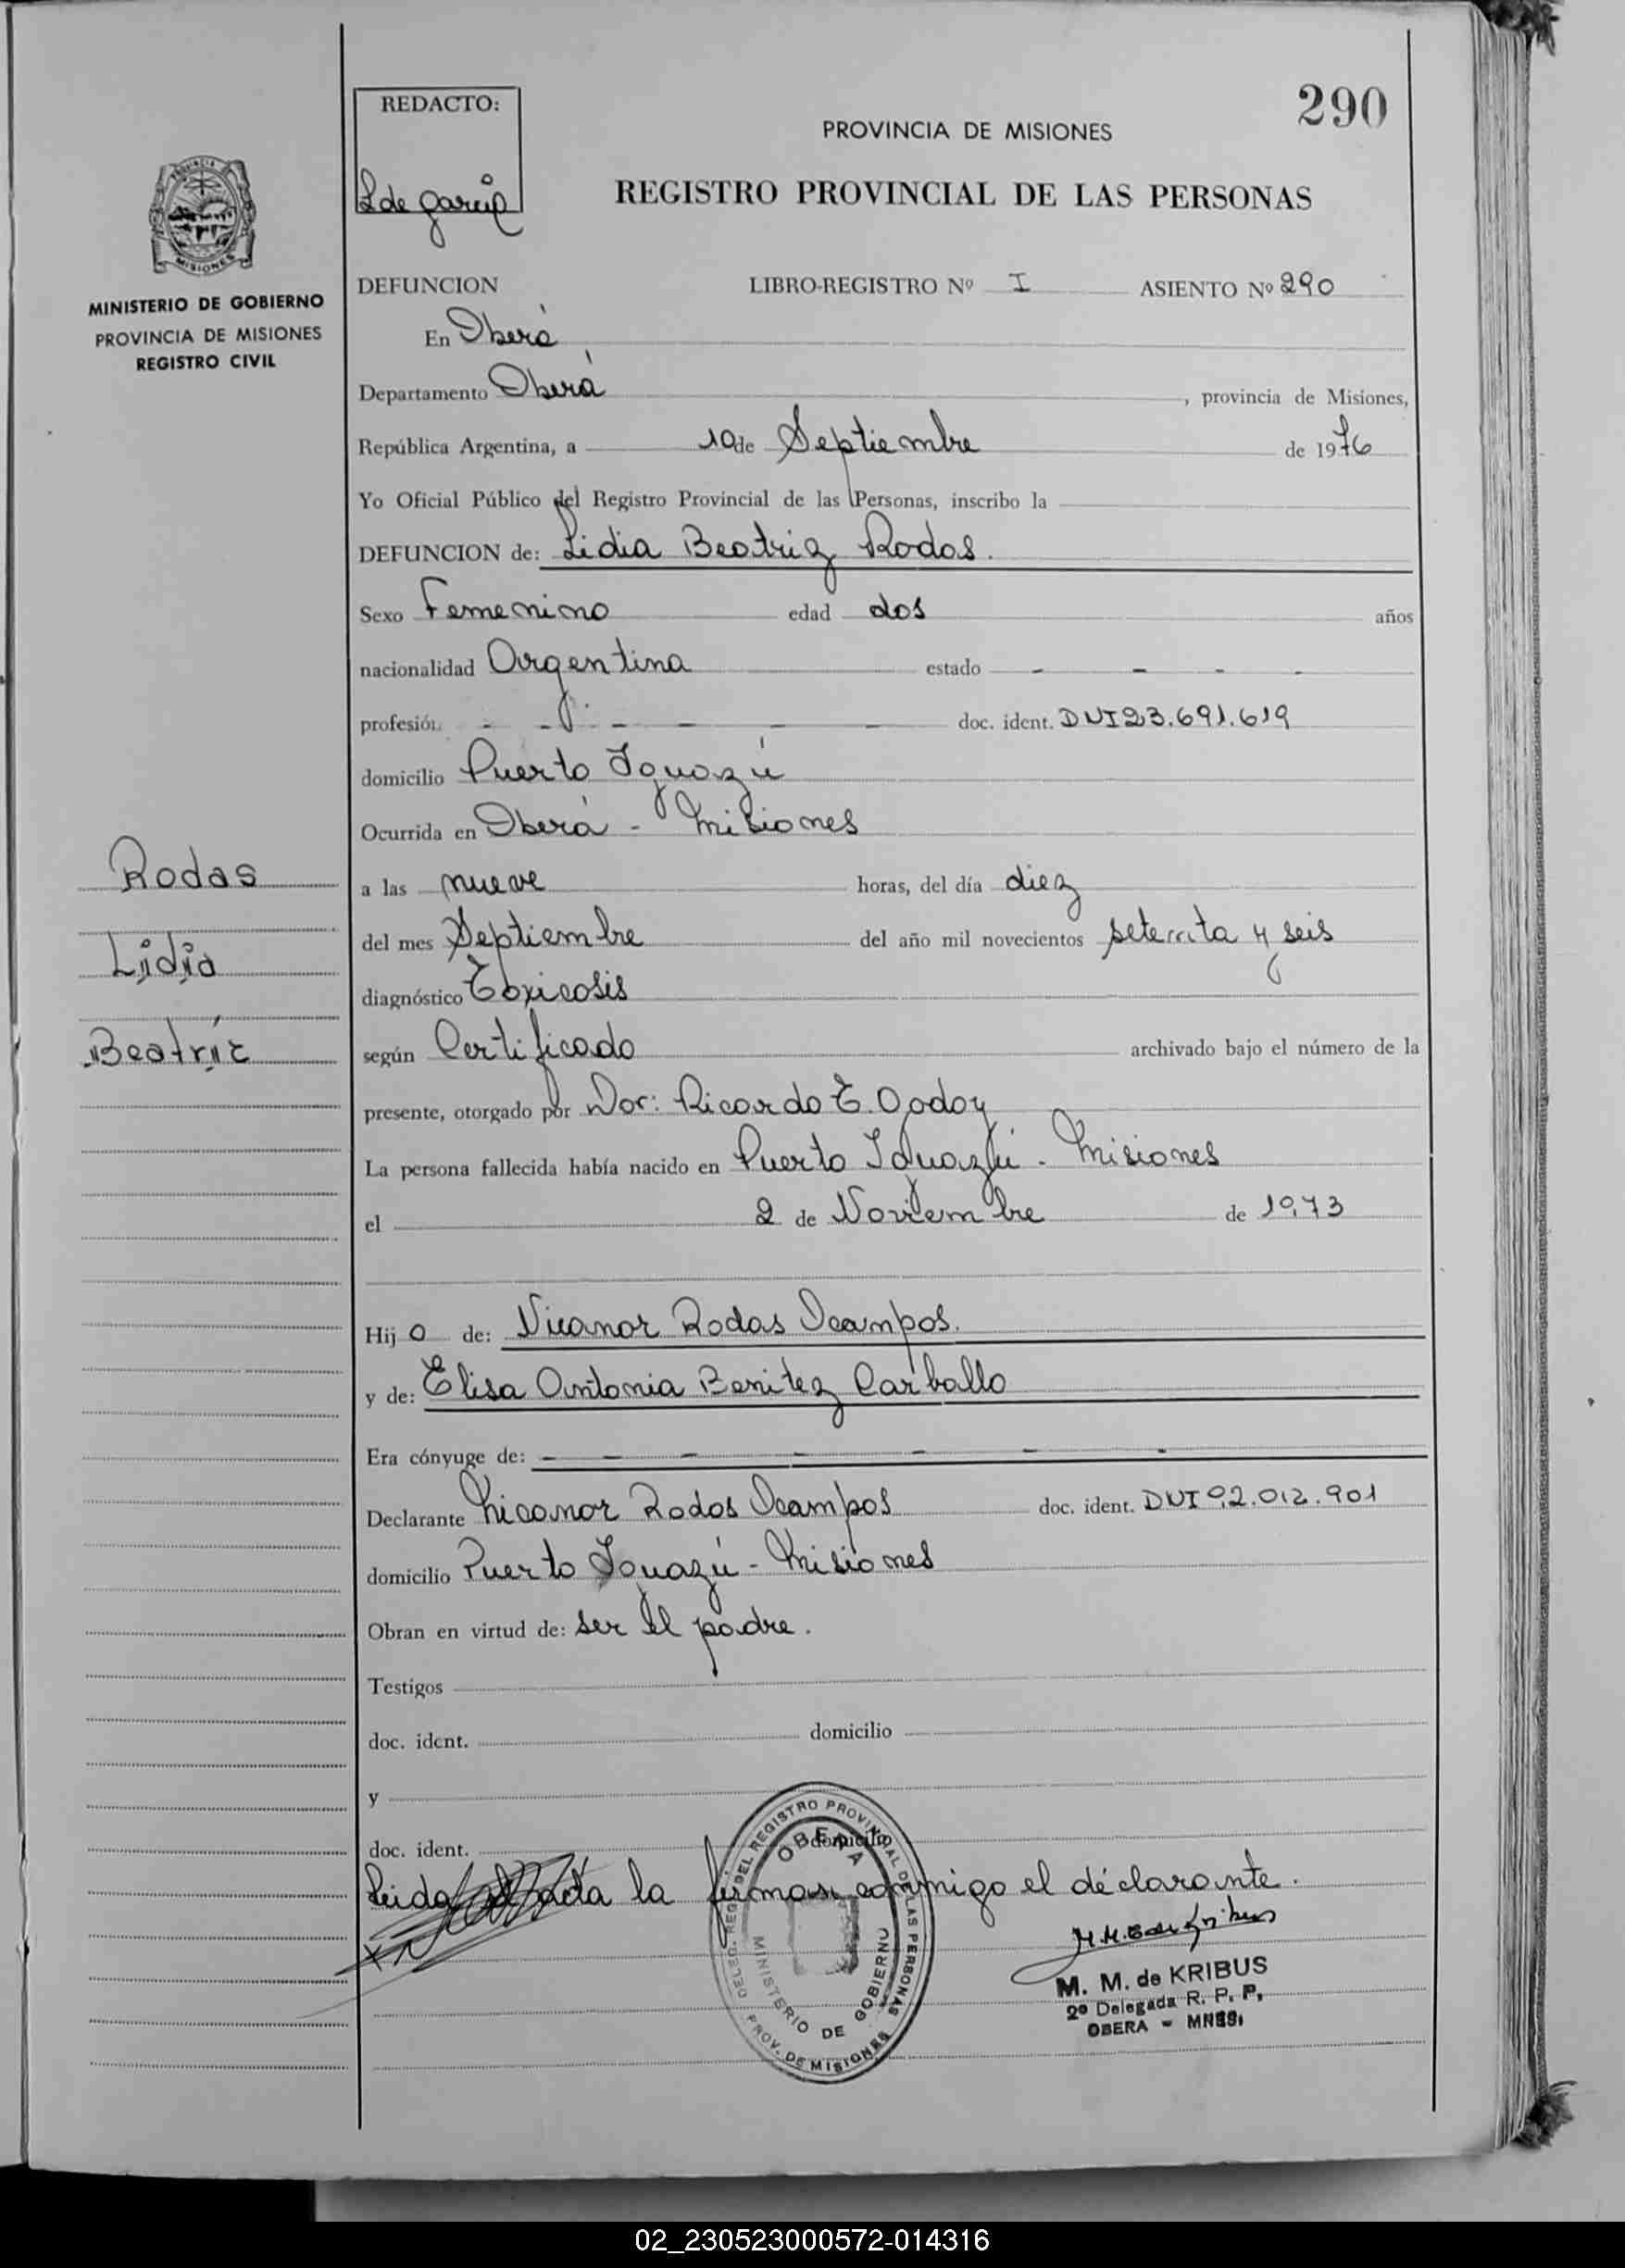 290
REDACTO:
L de Garcia
PROVINCIA DE MISIONES
REGISTRO PROVINCIAL DE LAS PERSONAS
MISIONES
MINISTERIO DE GOBIERNO
PROVINCIA DE MISIONES
REGISTRO CIVIL
Rodas
Lidia
Beatríz
DEFUNCION LIBRO-REGISTRO Nº I ASIENTO Nº 290
En Oberá
Departamento Oberá , provincia de Misiones,
República Argentina, a 10 de Septiembre de 1976
Yo Oficial Público del Registro Provincial de las Personas, inscribo la
DEFUNCION de: Lidia Beatriz Rodas.
Sexo Femenino edad dos años
nacionalidad Argentina estado - - - -
profesión - - - - - - doc. ident. DNI 23.691.619
domicilio Puerto Iguazú
Ocurrida en Oberá - Misiones
a las nueve horas, del día diez
del mes Septiembre del año mil novecientos setenta y seis
diagnóstico Toxicosis
según Certificado archivado bajo el número de la
presente, otorgado por Dor: Ricardo E. Godoy
La persona fallecida había nacido en Puerto Iguazú - Misiones
el 2 de Noviembre de 1973
Hijo de: Nicanor Rodas Ocampos.
y de: Elisa Antonia Benitez Carballo
Era cónyuge de: - - - - - - -
Declarante Nicanor Rodas Ocampos doc. ident. DNI 92.012.901
domicilio Puerto Iguazú - Misiones
Obran en virtud de: ser el padre.
Testigos
doc. ident. domicilio
y
doc. ident. domicilio
Leida el acta la firman conmigo el declarante.
DELEG. REG. DEL REGISTRO PROVINCIAL DE LAS PERSONAS
OBERA
MINISTERIO DE GOBIERNO
PROV. DE MISIONES
M. M. de KRIBUS
2º Delegada R. P. P.
OBERA - MNES.
02_230523000572-014316